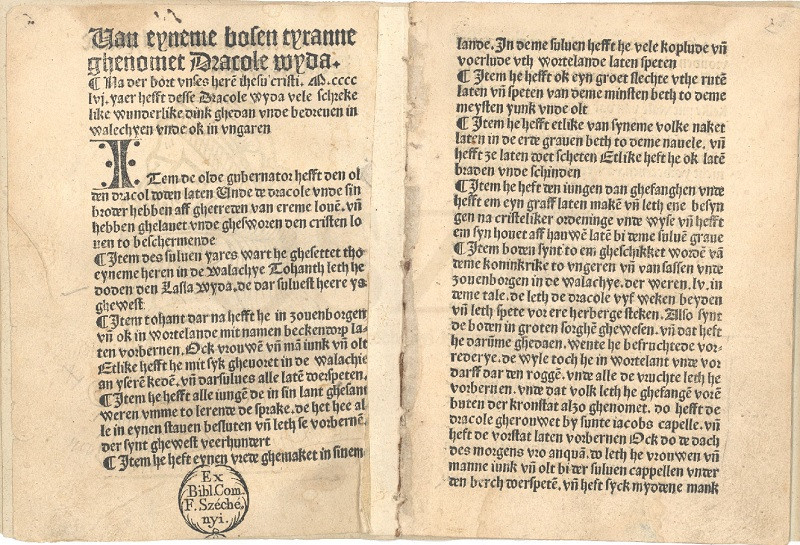 Uan eyneme bosen tyranne
ghenomet Dracole wyda.
¶ Na der bort vnses herē ihesu cristi. M.cccc
lvj. yaer hefft desse Dracole wyda vele schreke
like wunderlike dink ghedan vnde bedreuen in
walechyen vnde ok in vngaren
ITem de olde gubernator hefft den ol
den dracol doden laten Unde de dracole vnde sin
broder hebben aff ghetreden van ereme louē. vn̄
hebben ghelauet vnde ghesworen den cristen lo
uen to beschermende
¶ Item des suluen yares wart he ghesettet tho
eyneme heren in de walachye Tohanth leth he
doden den Lasla wyda. de dar suluest heere ys
ghewest
¶ Item tohant dar na hefft he in zouenborgen
vn̄ ok in wortelande mit namen beckendorp la-
ten vorbernen. Ock vrouwē vn̄ mā iunk vn̄ olt
Etlike hefft he mit syk gheuoret in de walachie
an yserē kedē. vn̄ darsulues alle latē toerspeten.
¶ Item he hefft alle iungē de in sin lant ghesant
weren vmme to lerende de sprake. de het hee al
le in eynen stauen besluten vn̄ leth se vorbernē.
der synt ghewest veerhundert
¶ Item he heft eynen vrede ghemaket in sinem
lande. In deme suluen hefft he vele koplude vn̄
voerlude vth wortelande laten speten
¶ Item he hefft ok eyn groet slechte vthe rutē
laten vn̄ speten van deme minsten beth to deme
meysten yunk vnde olt
¶ Item he hefft etlike van syneme volke naket
laten in de erde grauen beth to deme nauele. vn̄
hefft ze laten doet scheten Etlike heft he ok latē
braden vnde schinden
¶ Item he heft den iungen dan ghefanghen vnde
hefft em eyn graff laten makē vn̄ leth ene besyn
gen na cristeliker ordeninge vnde wyse vn̄ hefft
em syn houet aff hauwē latē bi deme suluē graue
¶ Item boden synt to em gheschikket wordē vā
deme koninkrike to vngeren vn̄ van sassen vnde
zouenborgen in de walachye. der weren. lv. in
deme tale. de leth de dracole vyf weken beyden
vn̄ leth spete vor ere herberge steken. Also synt
de boden in groten sorghē ghewesen. vn̄ dat heft
he darūme ghedaen. wente he befruchtede vor-
rederye. de wyle toch he in wortelant vnde vor
darff dar den roggē. vnde alle de vruchte leth he
vorbernen. vnde dat volk leth he ghefangē vorē
buten der kronstat alzo ghenomet. do hefft de
dracole gherouwet by sunte iacobs capelle. vn̄
heft de vorstat laten vorbernen Ock do de dach
des morgens vro anquā. do leth he vrouwen vn̄
manne iunk vn̄ olt bi der suluen cappellen vnder
den berch toerspetē. vn̄ heft syck myddene mank
Ex
Bibl. Com.
F. Széché
nyi.